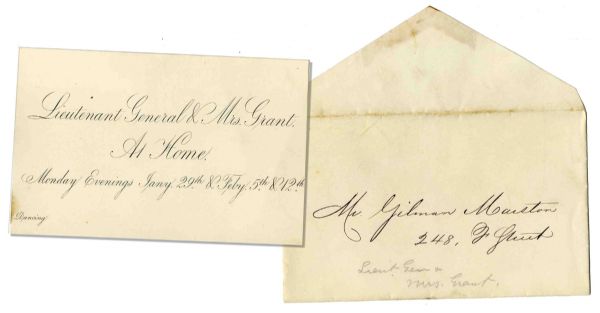 Lieutenant General & Mrs. Grant.
At Home.
Monday Evenings Jany. 29th & Feby. 5th & 12th
Dancing
Mr. Gilman Marston
248, F Street
Lieut. Gen &
Mrs. Grant.